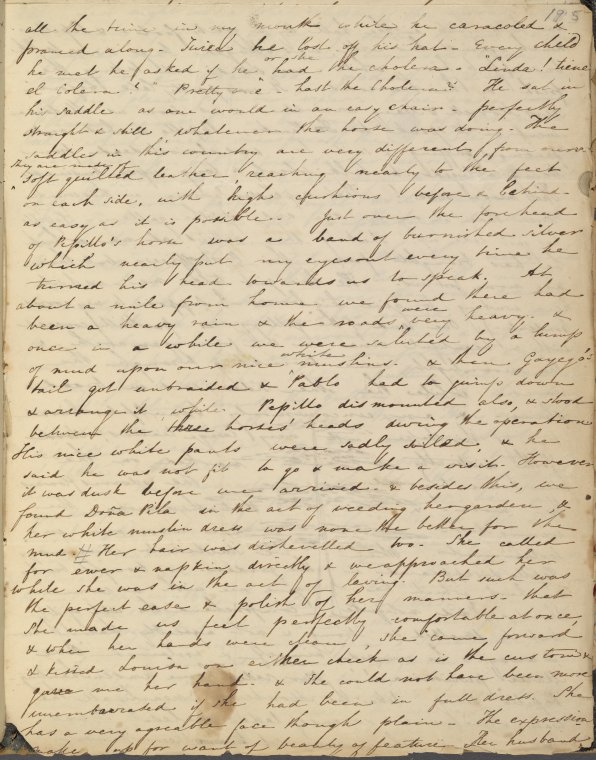 185
all the time in my mouth while he caracoled &
pranced along. Twice he lost off his hat - Every child
he met he asked if he had the cholera - "Linda! tiene
or she
el Colera?" "Pretty one - hast the Cholera?" He sat in
his saddle as one would in an easy chair - perfectly
straight & still whatever the horse was doing - The
saddles in this country are very different from ours.
They are made of
soft quilted leather reaching nearly to the feet
on each side, with high cushions before & behind -
as easy as it is possible. Just over the forehead
of Pepillo's horse was a band of burnished silver
which nearly put my eyes out every time he
turned his head towards us to speak. At
about a mile from home we found there had
been a heavy rain & the roads were very heavy. &
once in a while we were saluted by a lump
of mud upon our nice white muslins. & then Gayego's
tail got unbraided & Pablo had to jump down
& arrange it, while Pepillo dismounted also, & stood
between the three horses' heads during the operation
His nice white pants were sadly soiled, & he
said he was not fit to go & make a visit. However
it was dusk before we arrived & besides this, we
found Doña Pila in the act of weeding her garden, &
her white muslin dress was none the better for the
mud. # Her hair was dishevelled too. She called
for ewer & napkin directly & we approached her
while she was in the act of laving. But such was
the perfect ease & polish of her manners - that
she made us feel perfectly comfortable at once,
& when her hands were clean, she came forward
& kissed Louisa on either cheek as is the custom &
gave me her hand. & she could not have been more
unembarrassed if she had been in full dress. She
has a very agreeable face though plain - The expression
makes up for want of beauty of feature. Her husband